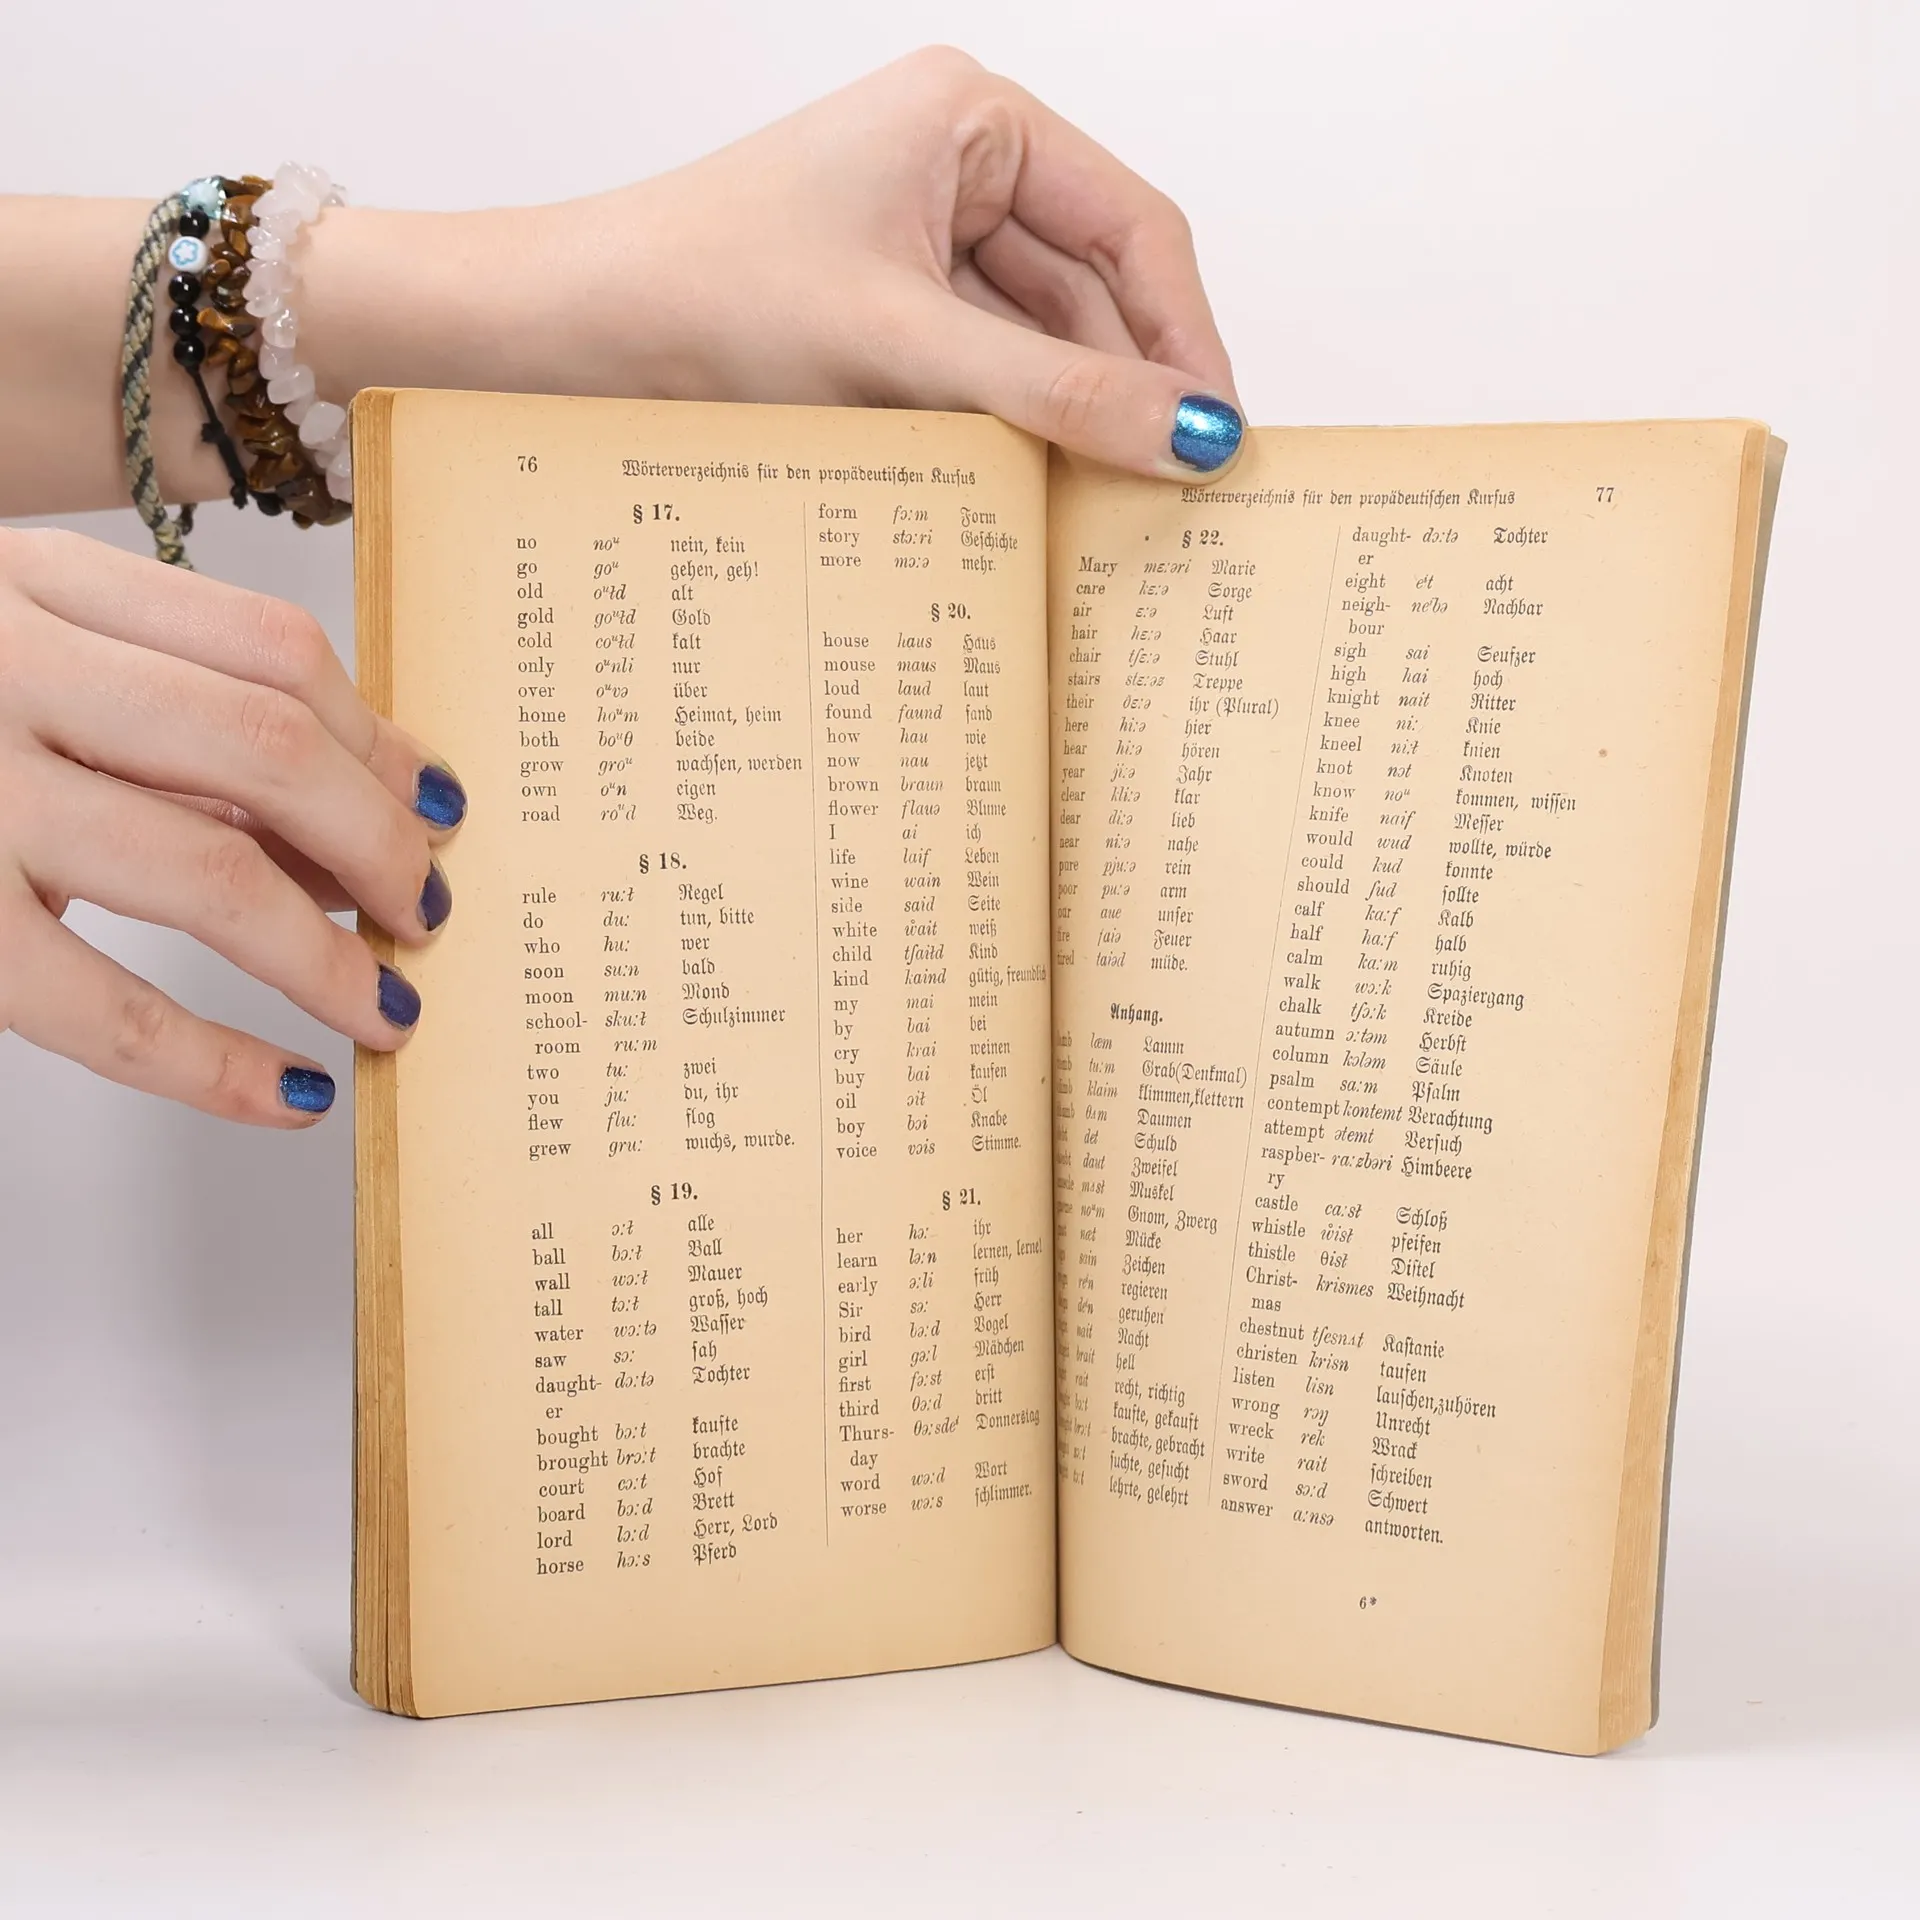 76
Wörterverzeichnis für den propädeutischen Kursus
§ 17.
no noᵘ nein, kein
go goᵘ gehen, geh!
old oᵘłd alt
gold goᵘłd Gold
cold coᵘłd kalt
only oᵘnli nur
over oᵘvə über
home hoᵘm Heimat, heim
both boᵘθ beide
grow groᵘ wachsen, werden
own oᵘn eigen
road roᵘd Weg.
§ 18.
rule ru:ł Regel
do du: tun, bitte
who hu: wer
soon su:n bald
moon mu:n Mond
school- sku:ł Schulzimmer
room ru:m
two tu: zwei
you ju: du, ihr
flew flu: flog
grew gru: wuchs, wurde.
§ 19.
all ɔ:ł alle
ball bɔ:ł Ball
wall wɔ:ł Mauer
tall tɔ:ł groß, hoch
water wɔ:tə Wasser
saw sɔ: sah
daught- dɔ:tə Tochter
er
bought bɔ:t kaufte
brought brɔ:t brachte
court cɔ:t Hof
board bɔ:d Brett
lord lɔ:d Herr, Lord
horse hɔ:s Pferd
form fɔ:m Form
story stɔ:ri Geschichte
more mɔ:ə mehr.
§ 20.
house haus Haus
mouse maus Maus
loud laud laut
found faund fand
how hau wie
now nau jetzt
brown braun braun
flower flauə Blume
I ai ich
life laif Leben
wine wain Wein
side said Seite
white ẘait weiß
child tʃaiłd Kind
kind kaind gütig, freundlich
my mai mein
by bai bei
cry krai weinen
buy bai kaufen
oil ɔił Öl
boy bɔi Knabe
voice vɔis Stimme.
§ 21.
her hə: ihr
learn lə:n lernen, lerne!
early ə:li früh
Sir sə: Herr
bird bə:d Vogel
girl gə:l Mädchen
first fə:st erst
third θə:d dritt
Thurs- θə:sdeⁱ Donnerstag
day
word wə:d Wort
worse wə:s schlimmer.
Wörterverzeichnis für den propädeutischen Kursus
77
§ 22.
Mary mɛ:əri Marie
care kɛ:ə Sorge
air ɛ:ə Luft
hair hɛ:ə Haar
chair tʃɛ:ə Stuhl
stairs stɛ:əz Treppe
their ðɛ:ə ihr (Plural)
here hi:ə hier
hear hi:ə hören
year ji:ə Jahr
clear kli:ə klar
dear di:ə lieb
near ni:ə nahe
pure pju:ə rein
poor pu:ə arm
our aue unser
fire faiə Feuer
tired taiəd müde.
Anhang.
læm Lamm
tu:m Grab(Denkmal)
klaim klimmen,klettern
θʌm Daumen
det Schuld
daut Zweifel
mʌsł Muskel
noᵘm Gnom, Zwerg
næt Mücke
sain Zeichen
reⁱn regieren
deⁱn geruhen
nait Nacht
brait hell
rait recht, richtig
bɔ:t kaufte, gekauft
brɔ:t brachte, gebracht
suchte, gesucht
tɔ:t lehrte, gelehrt
daught- dɔ:tə Tochter
er
eight eⁱt acht
neigh- neⁱbə Nachbar
bour
sigh sai Seufzer
high hai hoch
knight nait Ritter
knee ni: Knie
kneel ni:ł knien
knot nɔt Knoten
know noᵘ kommen, wissen
knife naif Messer
would wud wollte, würde
could kud konnte
should ʃud sollte
calf ka:f Kalb
half ha:f halb
calm ka:m ruhig
walk wɔ:k Spaziergang
chalk tʃɔ:k Kreide
autumn ɔ:təm Herbst
column kɔləm Säule
psalm sa:m Psalm
contempt kontemt Verachtung
attempt ətemt Versuch
raspber- ra:zbəri Himbeere
ry
castle ca:sł Schloß
whistle ẘisł pfeifen
thistle θisł Distel
Christ- krismes Weihnacht
mas
chestnut tʃesnʌt Kastanie
christen krisn taufen
listen lisn lauschen,zuhören
wrong rɔŋ Unrecht
wreck rek Wrack
write rait schreiben
sword sɔ:d Schwert
answer a:nsə antworten.
6*